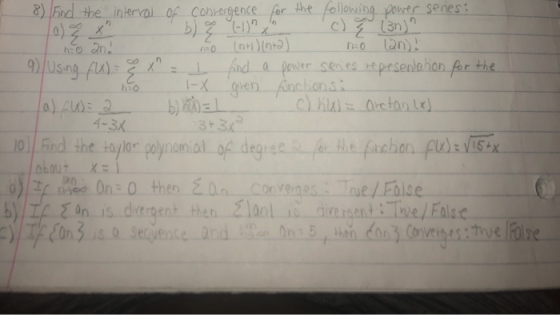 8) Find the interval of convergence for the following power series:
a) ∞ Σ n=0 x^n / 2n! b) ∞ Σ n=0 (-1)^n x^n / (n+1)(n+2) c) ∞ Σ n=0 (3n)^n / (2n)!
9) Using f(x) = ∞ Σ n=0 x^n = 1 / 1-x find a power series representation for the
given functions:
a) f(x) = 2 / 4-3x b) = 1 / 3+3x^2 c) h(x) = arctan(x)
10) Find the taylor polynomial of degree 2 for the function f(x) = √15+x
about x = 1
a) If an = 0 then Σ an converges: True/False
b) If Σ an is divergent then Σ|an| is divergent: True/False
c) If {an} is a sequence and an = 5, then {an} converges: true/False